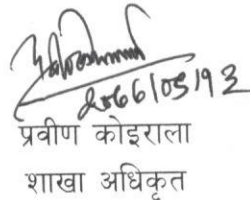 २०६६/०५/१२
प्रवीण कोइराला
शाखा अधिकृत